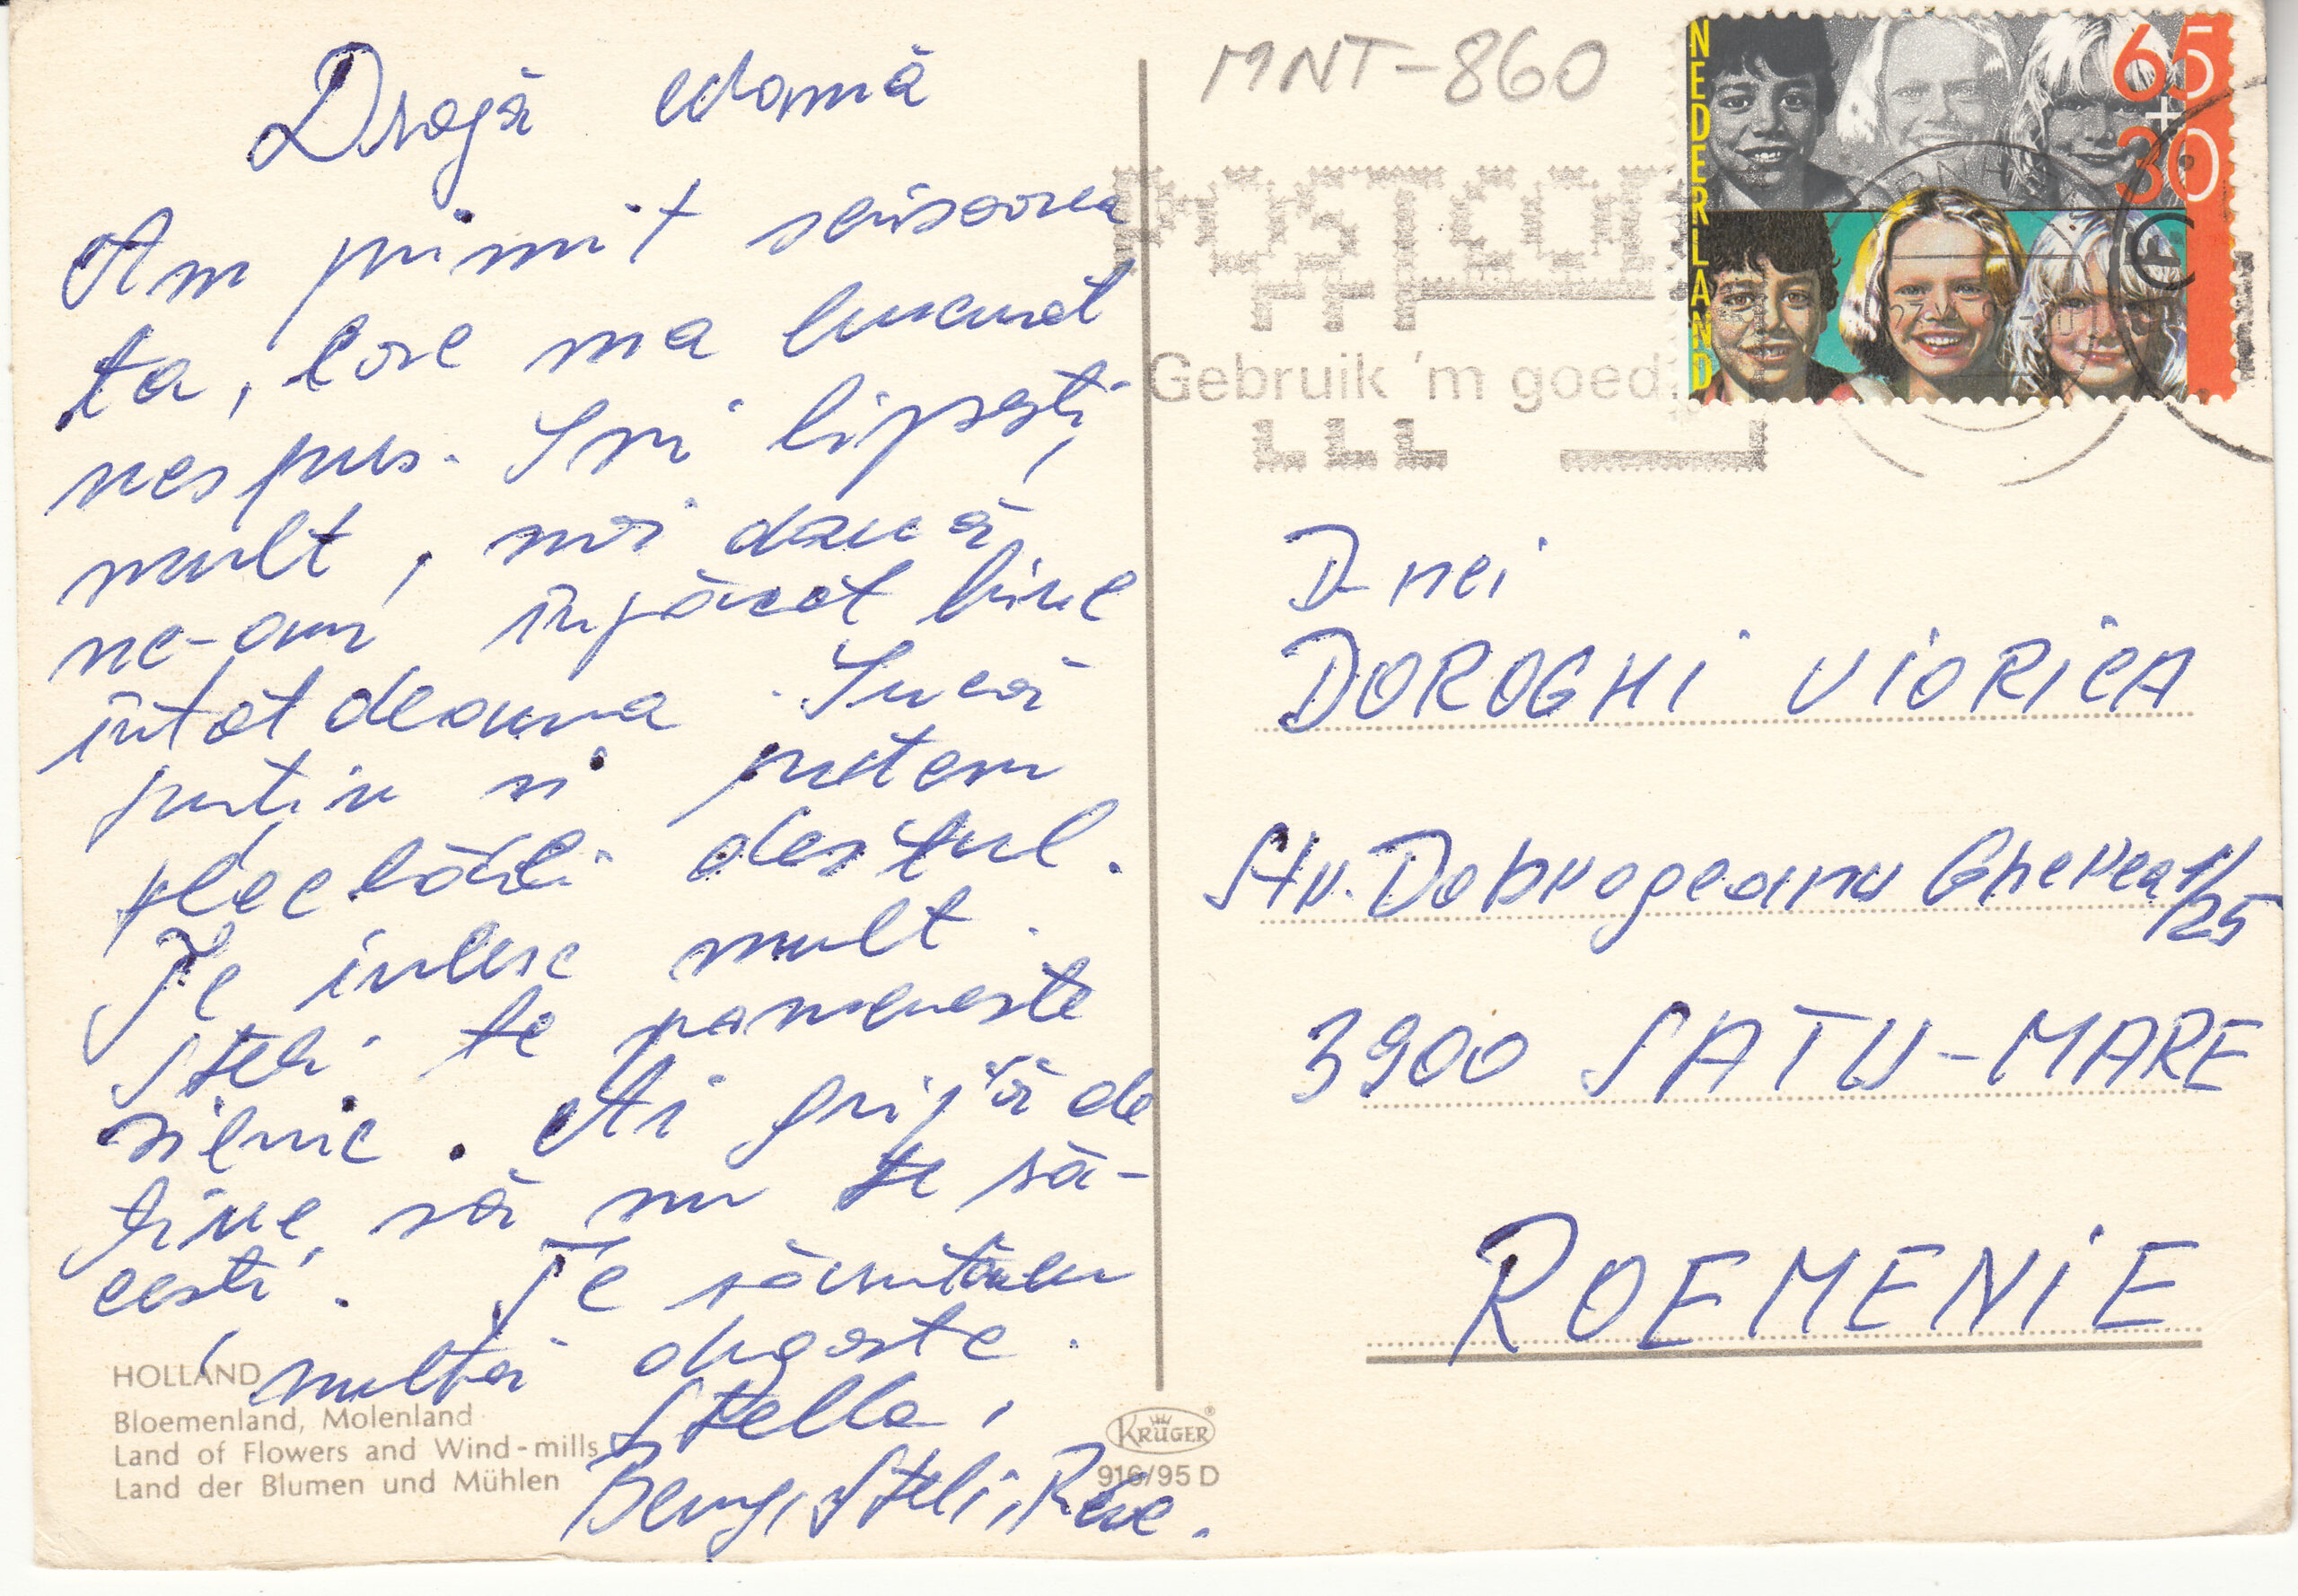 Dragă Mamă
Am primit scrisoarea
ta, care ma bucurat
nespus. Imi lipsești
mult, noi dacă
ne-am înpăcat bine
întotdeauna. Incă
puțin și putem
destul.
Te iubesc mult.
Steli te pomenește
zilnic. Ai grijă de
tine, să nu te ră-
cești. Te sărutăm
multă dragoste.
Stella,
Beny, Steli, Rene.
HOLLAND
Bloemenland, Molenland
Land of Flowers and Wind-mills
Land der Blumen und Mühlen
KRÜGER
916/95 D
MNT-860
POSTCODE
Gebruik 'm goed
NEDERLAND
65
+
30
D-nei
DOROGHI VIORICA
Str. Dobrogeanu Gherea 1/25
3900 SATU-MARE
ROEMENIE